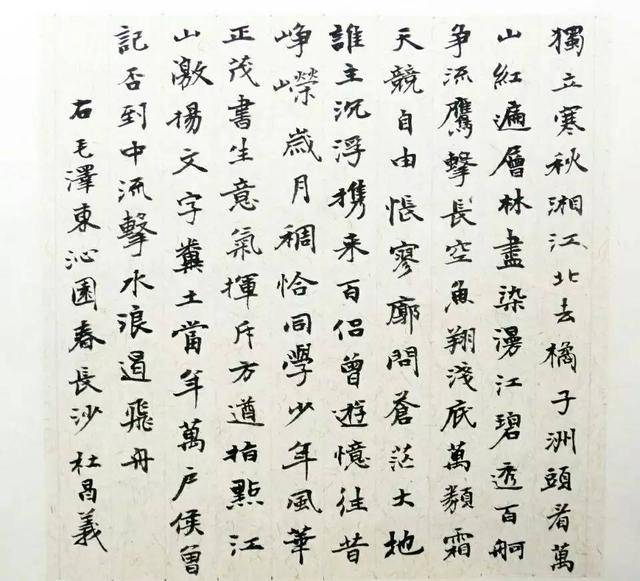 獨立寒秋湘江北去橘子洲頭看萬
山紅遍層林盡染漫江碧透百舸
争流鷹擊長空魚翔淺底萬類霜
天競自由悵寥廓問蒼茫大地
誰主沉浮携来百侣曾遊憶往昔
峥嶸歲月稠恰同學少年風華
正茂書生意氣揮斥方遒指點江
山激揚文字糞土當年萬户侯曾
記否到中流擊水浪遏飛舟
右毛澤東沁園春長沙杜昌義